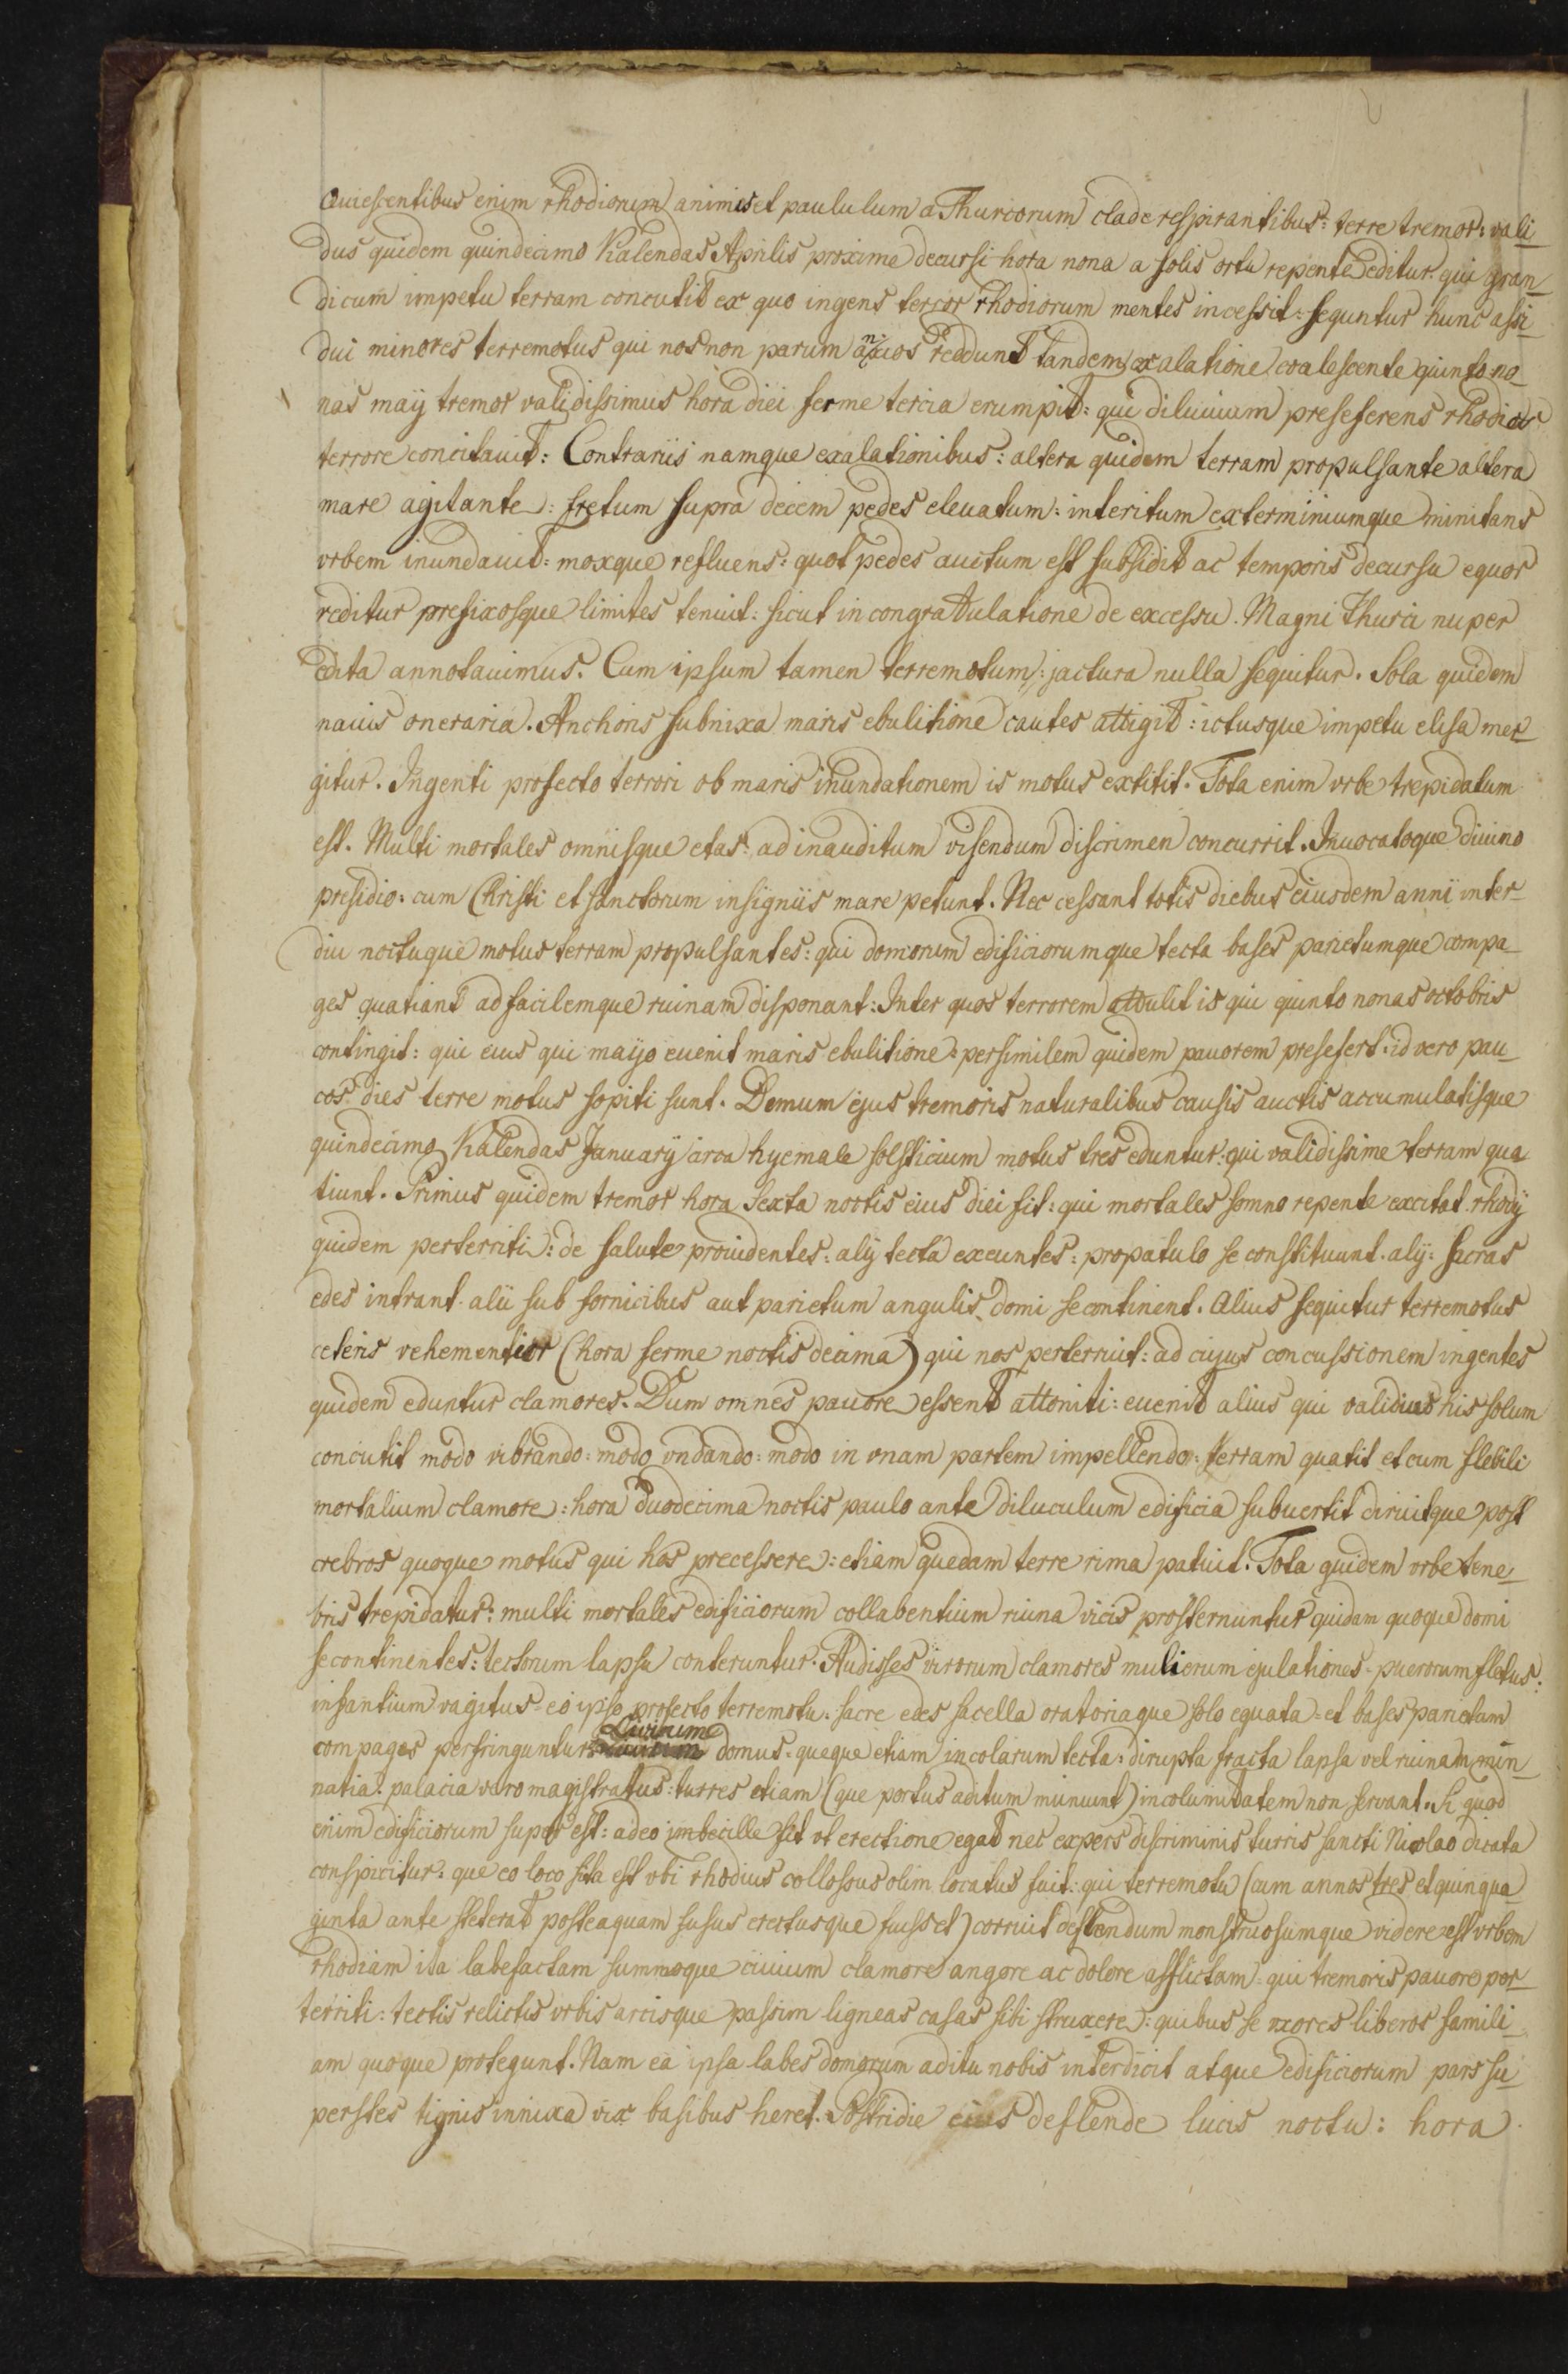 Quiescentibus enim rhodiorum animis et paululum a Thurcorum clade respirantibus: terre tremor: vali_
dus quidem quindecimo Kalendas Aprilis proxime decursi hora nona a solis ortu repente editur. qui gran_
di cum impetu terram concutit ex quo ingens terror rhodiorum mentes incessit: sequntur hunc assi_
dui minores terremotus qui nos non parum anxios reddunt Tandem exalatione coalescente quinto no_
nas maÿ tremor validissimus hora diei ferme tercia erumpit: qui diluuium preseferens rhodios
terrore concitauit: Contrariis namque exalationibus: altera quidem terram propulsante altera
mare agitante: fretum supra decem pedes eleuatum: interitum exterminiumque minitans
vrbem inundauit: moxque refluens: quot pedes auctum est subsidit ac temporis decursu equor
reditur prefixosque limites tenuit: sicut in congratulatione de excessu. Magni Thurci nuper
edita annotauimus. Cum ipsum tamen terremotum: jactura nulla sequitur. Sola quidem
nauis oneraria. Anchoris subnixa maris ebulitione cautes attigit: ictusque impetu elisa mer_
gitur. Ingenti profecto terrori ob maris inundationem is motus extitit. Tota enim vrbe trepidatum
est. Multi mortales omnisque etas: ad inauditum visendum discrimen concurrit. Inuocatoque diuino
presidio: cum Christi et sanctorum insigniis mare petunt. Nec cessant totis diebus eiusdem anni inter_
diu noctuque motus terram propulsantes: qui domorum edificiorumque tecta bases parietumque compa_
ges quatiant ad facilemque ruinam disponant: Inter quos terrorem attulit is qui quinto nonas octobris
contingit: qui eius qui mayo euenit maris ebulitione: persimilem quidem pauorem presefert: id vero pau_
cos dies terre motus sopiti sunt. Demum ejus tremoris naturalibus causis auctis accumulatisque
quindecimo Kalendas Januarÿ circa hyemale solsticium motus tres eduntur: qui validissime terram qua
tiunt. Primus quidem tremor hora sexta noctis eius diei fit: qui mortales somno repente excitat. rhodÿ
quidem perterriti: de salute prouidentes: alÿ tecta exeuntes: propatulo se constituunt. alÿ: sacras
edes intrant. alii sub fornicibus aut parietum angulis domi se continent. Alius sequitur terremotus
ceteris vehementior (hora ferme noctis decima) qui nos perterruit: ad cujus concussionem ingentes
quidem eduntur clamores. Dum omnes pauore essent attoniti: euenit alius qui validius his solum
concutit modo vibrando: modo vndando: modo in vnam partem impellendo: terram quatit et cum flebili
mortalium clamore: hora duodecima noctis paulo ante diluculum edificia subuertit diruitque post
crebros quoque motus qui hos precessere: etiam quedam terre rima patuit. Tota quidem vrbe tene_
bris trepidatur: multi mortales edificiorum collabentium ruina vicis prosternuntur quidam quoque domi
se continentes: tectorum lapsu conteruntur. Audisses virorum clamores mulierum ejulationes. puerorum fletus:
infantium vagitus. eo ipso profecto terremotu: sacre edes sacella oratoriaque solo equata: et bases parietum
compages perfringuntur. Diuinum domus: queque etiam incolarum tecta: dirupta fracta lapsa vel ruinam min_
natia. palacia vero magistratus: turres etiam (que portus aditum muniunt) incolumitatem non servant. Si quod
enim edificiorum super est: adeo imbecille fit vt erectione egat nec expers discriminis turris sancti Nicolao dicata
conspicitur: que eo loco sita est vbi rhodius collossus olim locatus fuit: qui terremotu (cum annos tres et quinqua
ginta ante steterat posteaquam fusus erectusque fuisset) corruit deflendum monstruosumque videre est vrbem
rhodiam ita labefactam summoque ciuium clamore angore ac dolore afflictam: qui tremoris pauore per_
territi: tectis relictis vrbis arcisque passim ligneas casas sibi struxere: quibus se vxores liberos famili_
am quoque protegunt. Nam ea ipsa labes domorum aditu nobis interdicit atque edificiorum pars su_
perstes tignis innixa vix basibus heret. Postridie eius deflende lucis noctu: hora